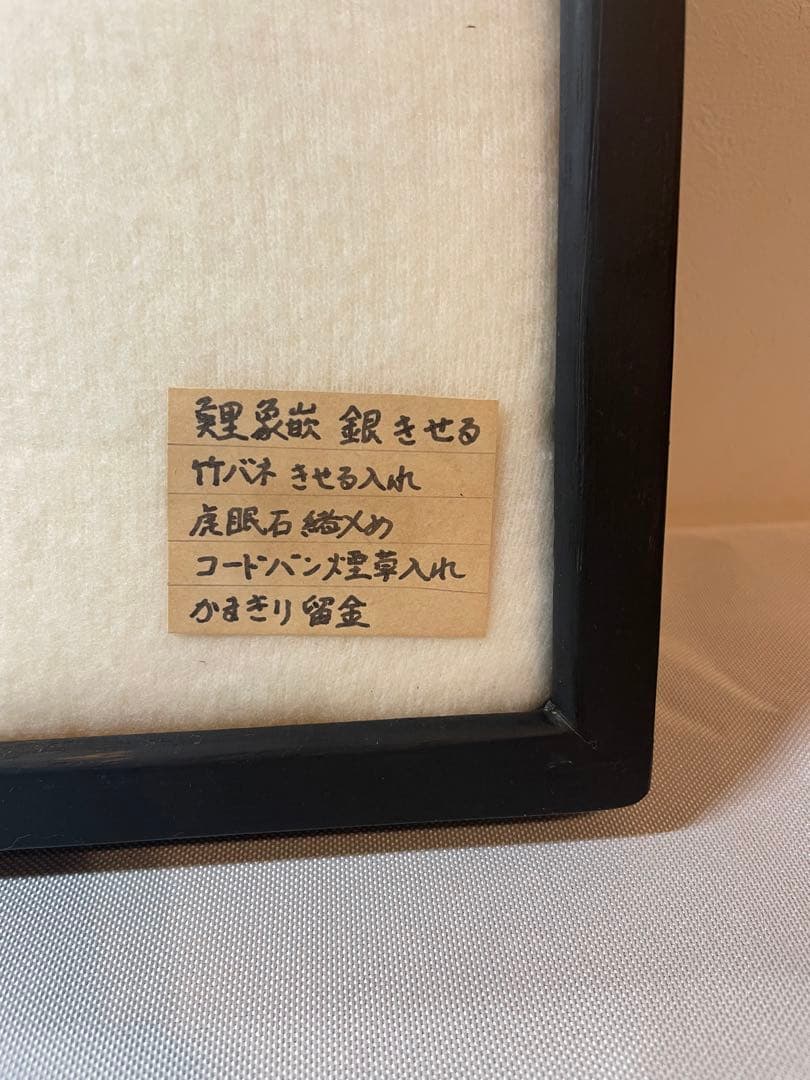 鯉象嵌 銀きせる
竹バネ きせる入れ
虎眠石 緒〆め
コードバン煙草入れ
かまきり留金